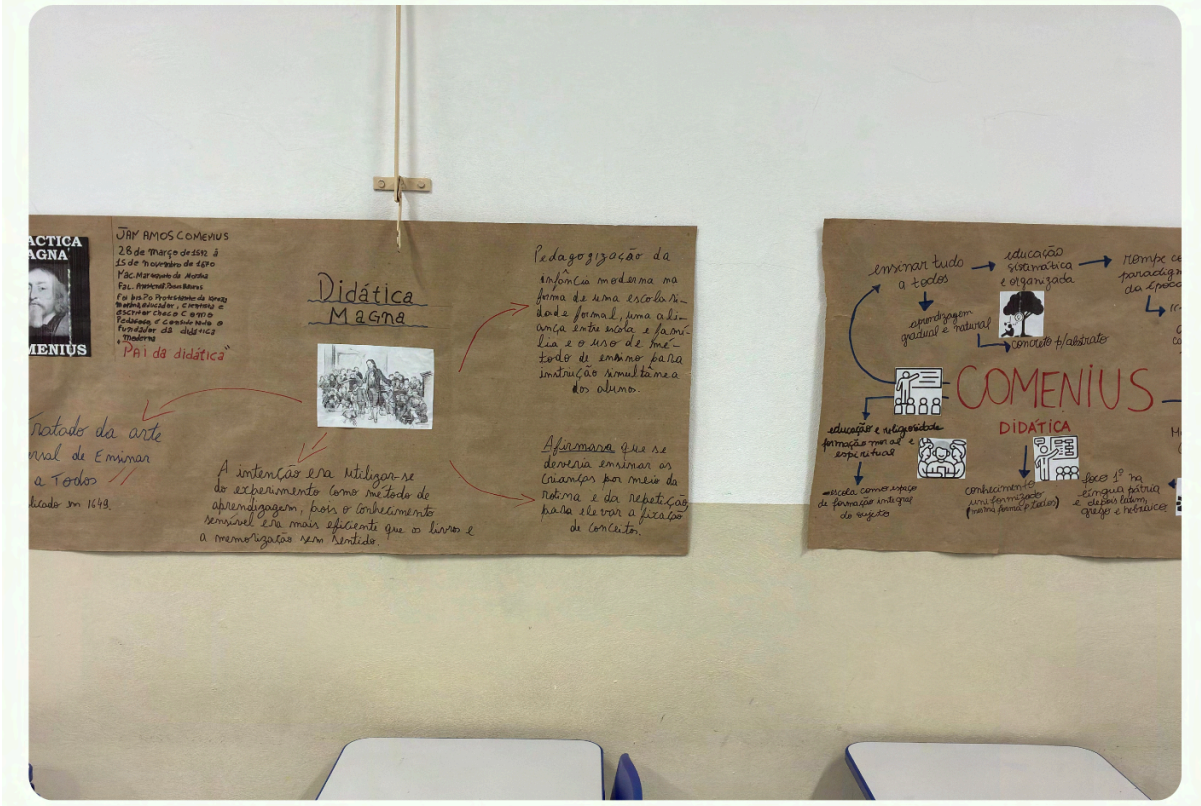 ACTICA
AGNA
MENIUS
JAN AMOS COMENIUS
28 de março de 1592 à
15 de novembro de 1670
Nac. Marquesato de Morávia
Fal.
Foi
escritor checo como
Pedagogo é considerado o
fundador da didática
moderna
"Pai da didática"
Didática
Magna
Tratado da arte
ersal de Ensinar
a Todos
licado em 1649.
A intenção era utilizar-se
do experimento como método de
aprendizagem, pois o conhecimento
sensível era mais eficiente que os livros e
a memorização sem sentido.
Pedagogização da
infância moderna na
forma de uma escolari-
dade formal, uma ali-
ança entre escola e famí-
lia e o uso de mé-
todo de ensino para
instrução simultânea
dos alunos.
Afirmava que se
deveria ensinar as
crianças por meio da
rotina e da repetição,
para elevar a fixação
de conceitos.
ensinar tudo
a todos
educação
sistemática
e organizada
rompe c
paradigm
da época
aprendizagem
gradual e natural
concreto p/abstrato
COMENIUS
DIDÁTICA
educação e religiosidade
formação moral e
espiritual
escola como espaço
de formação integral
do sujeito
conhecimento
uniformizado
(mesma forma p/ todos)
foco 1º na
língua pátria
e depois latim,
grego e hebraico.